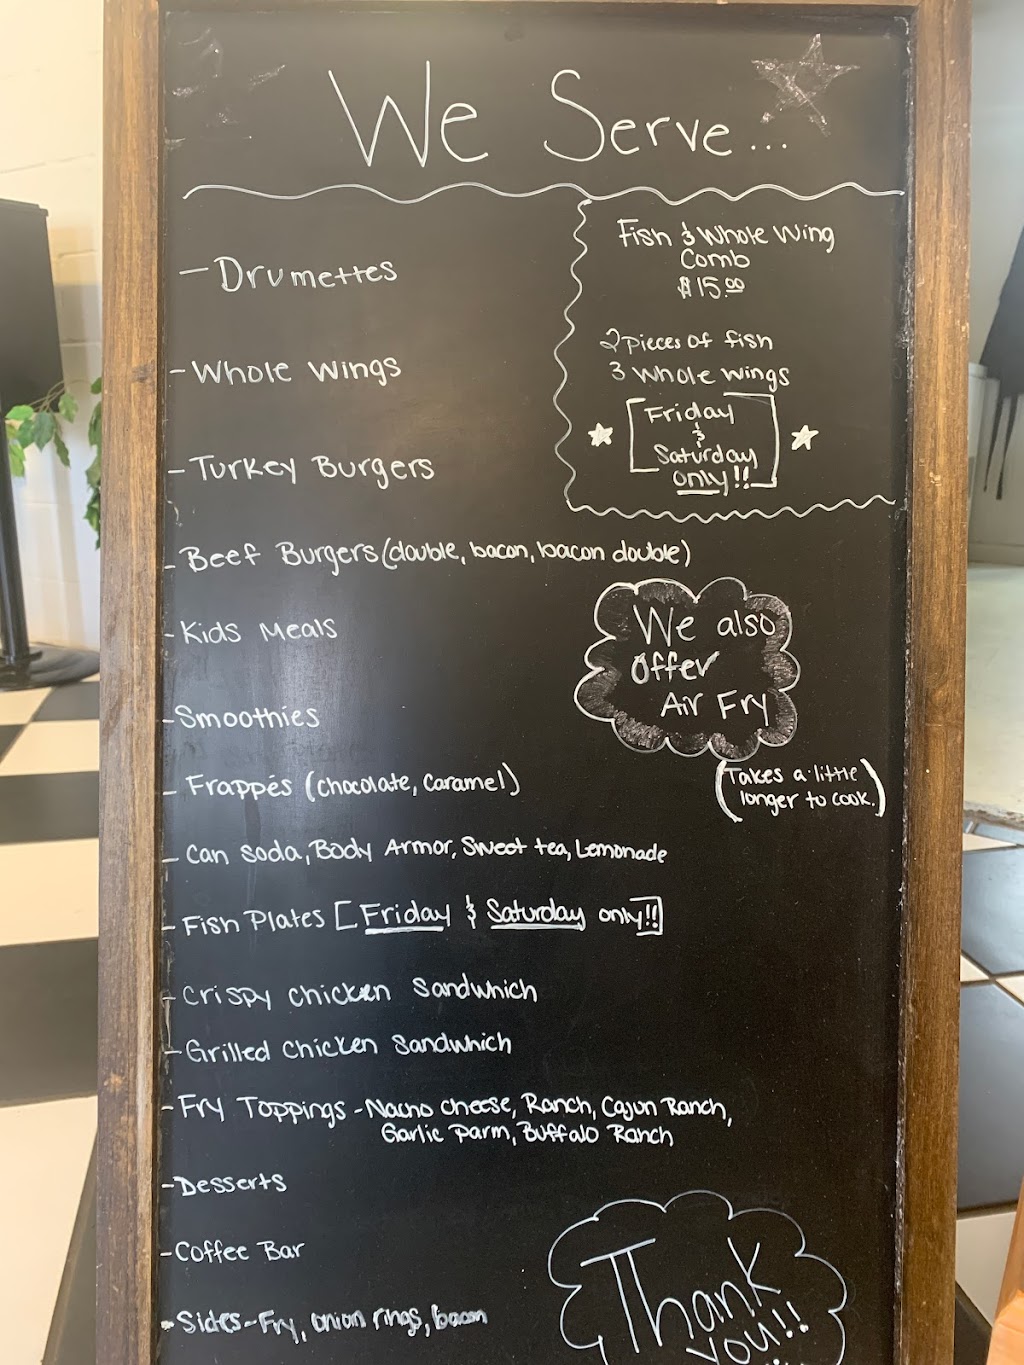 We Serve...
- Drumettes
- Whole Wings
- Turkey Burgers
Fish & Whole Wing
Comb
$15.00
2 pieces of fish
3 whole wings
Friday
&
Saturday
only!!
- Beef Burgers (double, bacon, bacon double)
- Kids Meals
We also
offer
Air Fry
(Takes a little
longer to cook.)
- Smoothies
- Frappés (chocolate, caramel)
- Can soda, Body Armor, Sweet tea, Lemonade
- Fish Plates [Friday & Saturday only!!]
- Crispy chicken sandwhich
- Grilled chicken sandwhich
- Fry Toppings - Nacho cheese, Ranch, Cajun Ranch,
Garlic Parm, Buffalo Ranch
- Desserts
- Coffee Bar
- Sides - Fry, onion rings, bacon
Thank
you!!